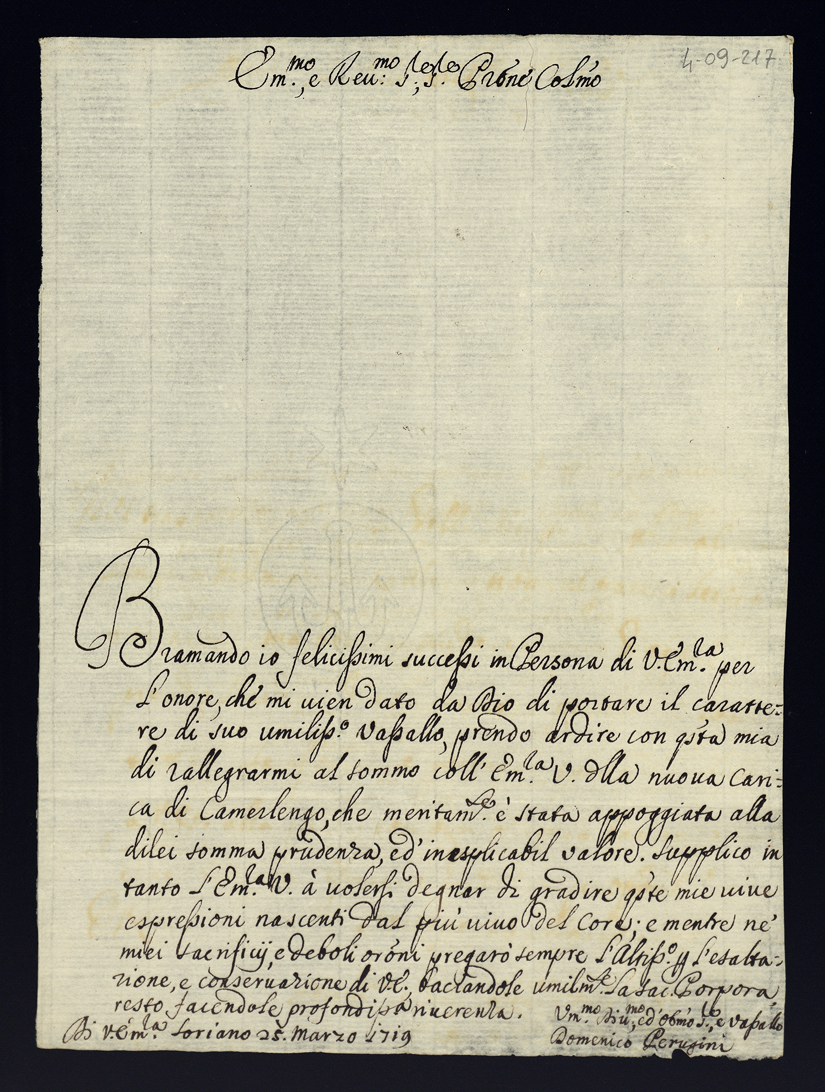 4-09-217
Em.mo, e Reu:mo S:re, S.re Prone Colmo
Bramando io felicissimi successi in Persona di V. Em.za per
l'onore, che mi uien dato da Dio di portare il caratte-
re di suo umiliss.o Vassallo, prendo ardire con qsta mia
di rallegrarmi al sommo coll'Em.za V. dlla nuova cari-
ca di Camerlengo, che meritam.te è stata appoggiata alla
dilei somma prudenza, ed' inesplicabil valore. Supplico in
tanto l'Em.za V. à uolersi degnar di gradire qste mie uiue
espressioni nascenti dal più uiuo del Core; e mentre ne'
miei sacrificij, e deboli oroni pregarò sempre l'Altiss.o p l'esalta-
zione, e conseruazione di VE. baciandole umilm.te la sac. Porpora
resto facendole profondissa riuerenza.
Di V. Em.za Soriano 25. Marzo 1719
Um.mo Diu.mo, ed' obmo S.re, e Vassallo
Domenico Perugini